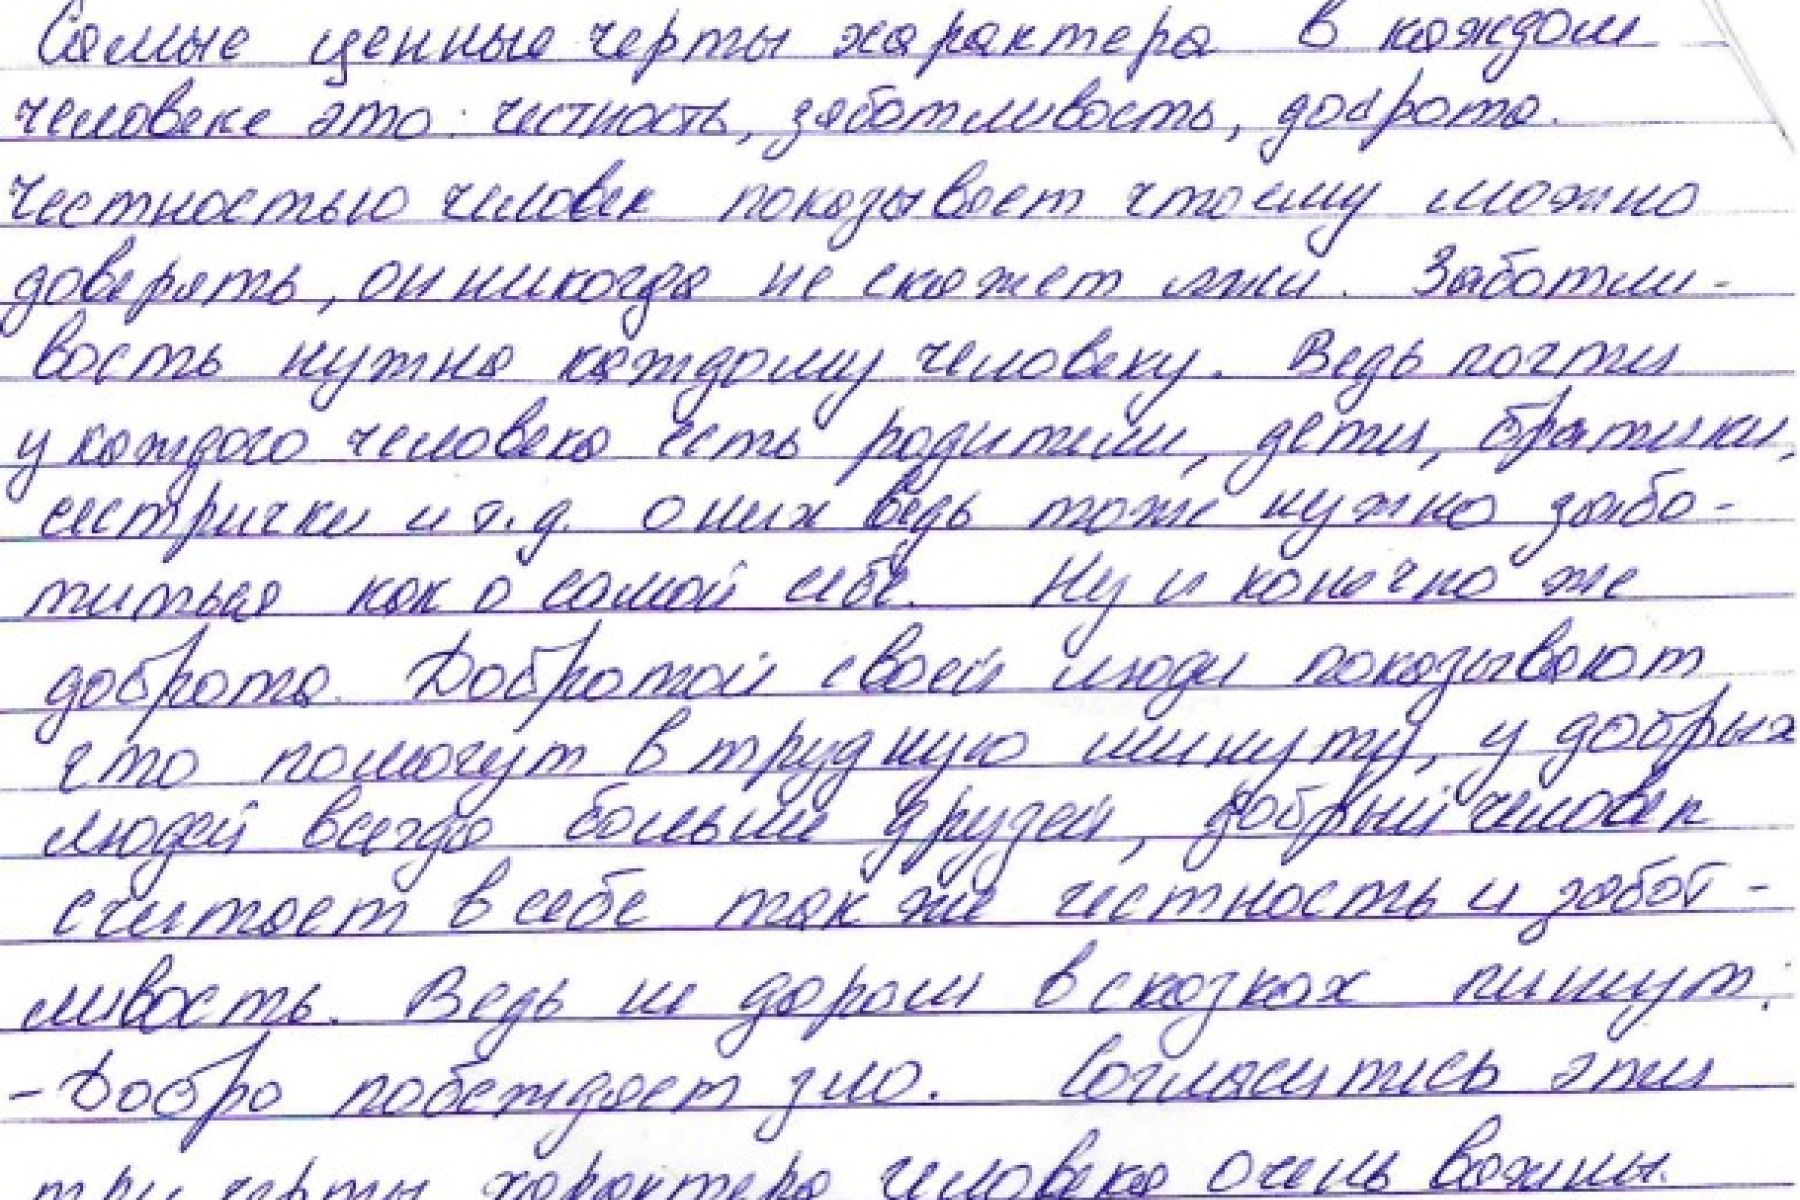 Самые ценные черты характера в каждом
человеке это: честность, заботливость, доброта.
Честностью человек показывает что ему можно
доверять, он никогда не скажет лжи. Заботли-
вость нужна каждому человеку. Ведь почти
у каждого человека есть родители, дети, братики,
сестрички и т.д. о них ведь тоже нужно забо-
титься как о самой себе. Ну и конечно же
доброта. Добротой своей люди показывают
что помогут в трудную минуту, у добрых
людей всегда больше друзей, добрый человек
считает в себе так же честность и забот-
ливость. Ведь не даром в сказках пишут:
-Добро побеждает зло. Согласитесь эти
три черты характера человека очень важны.